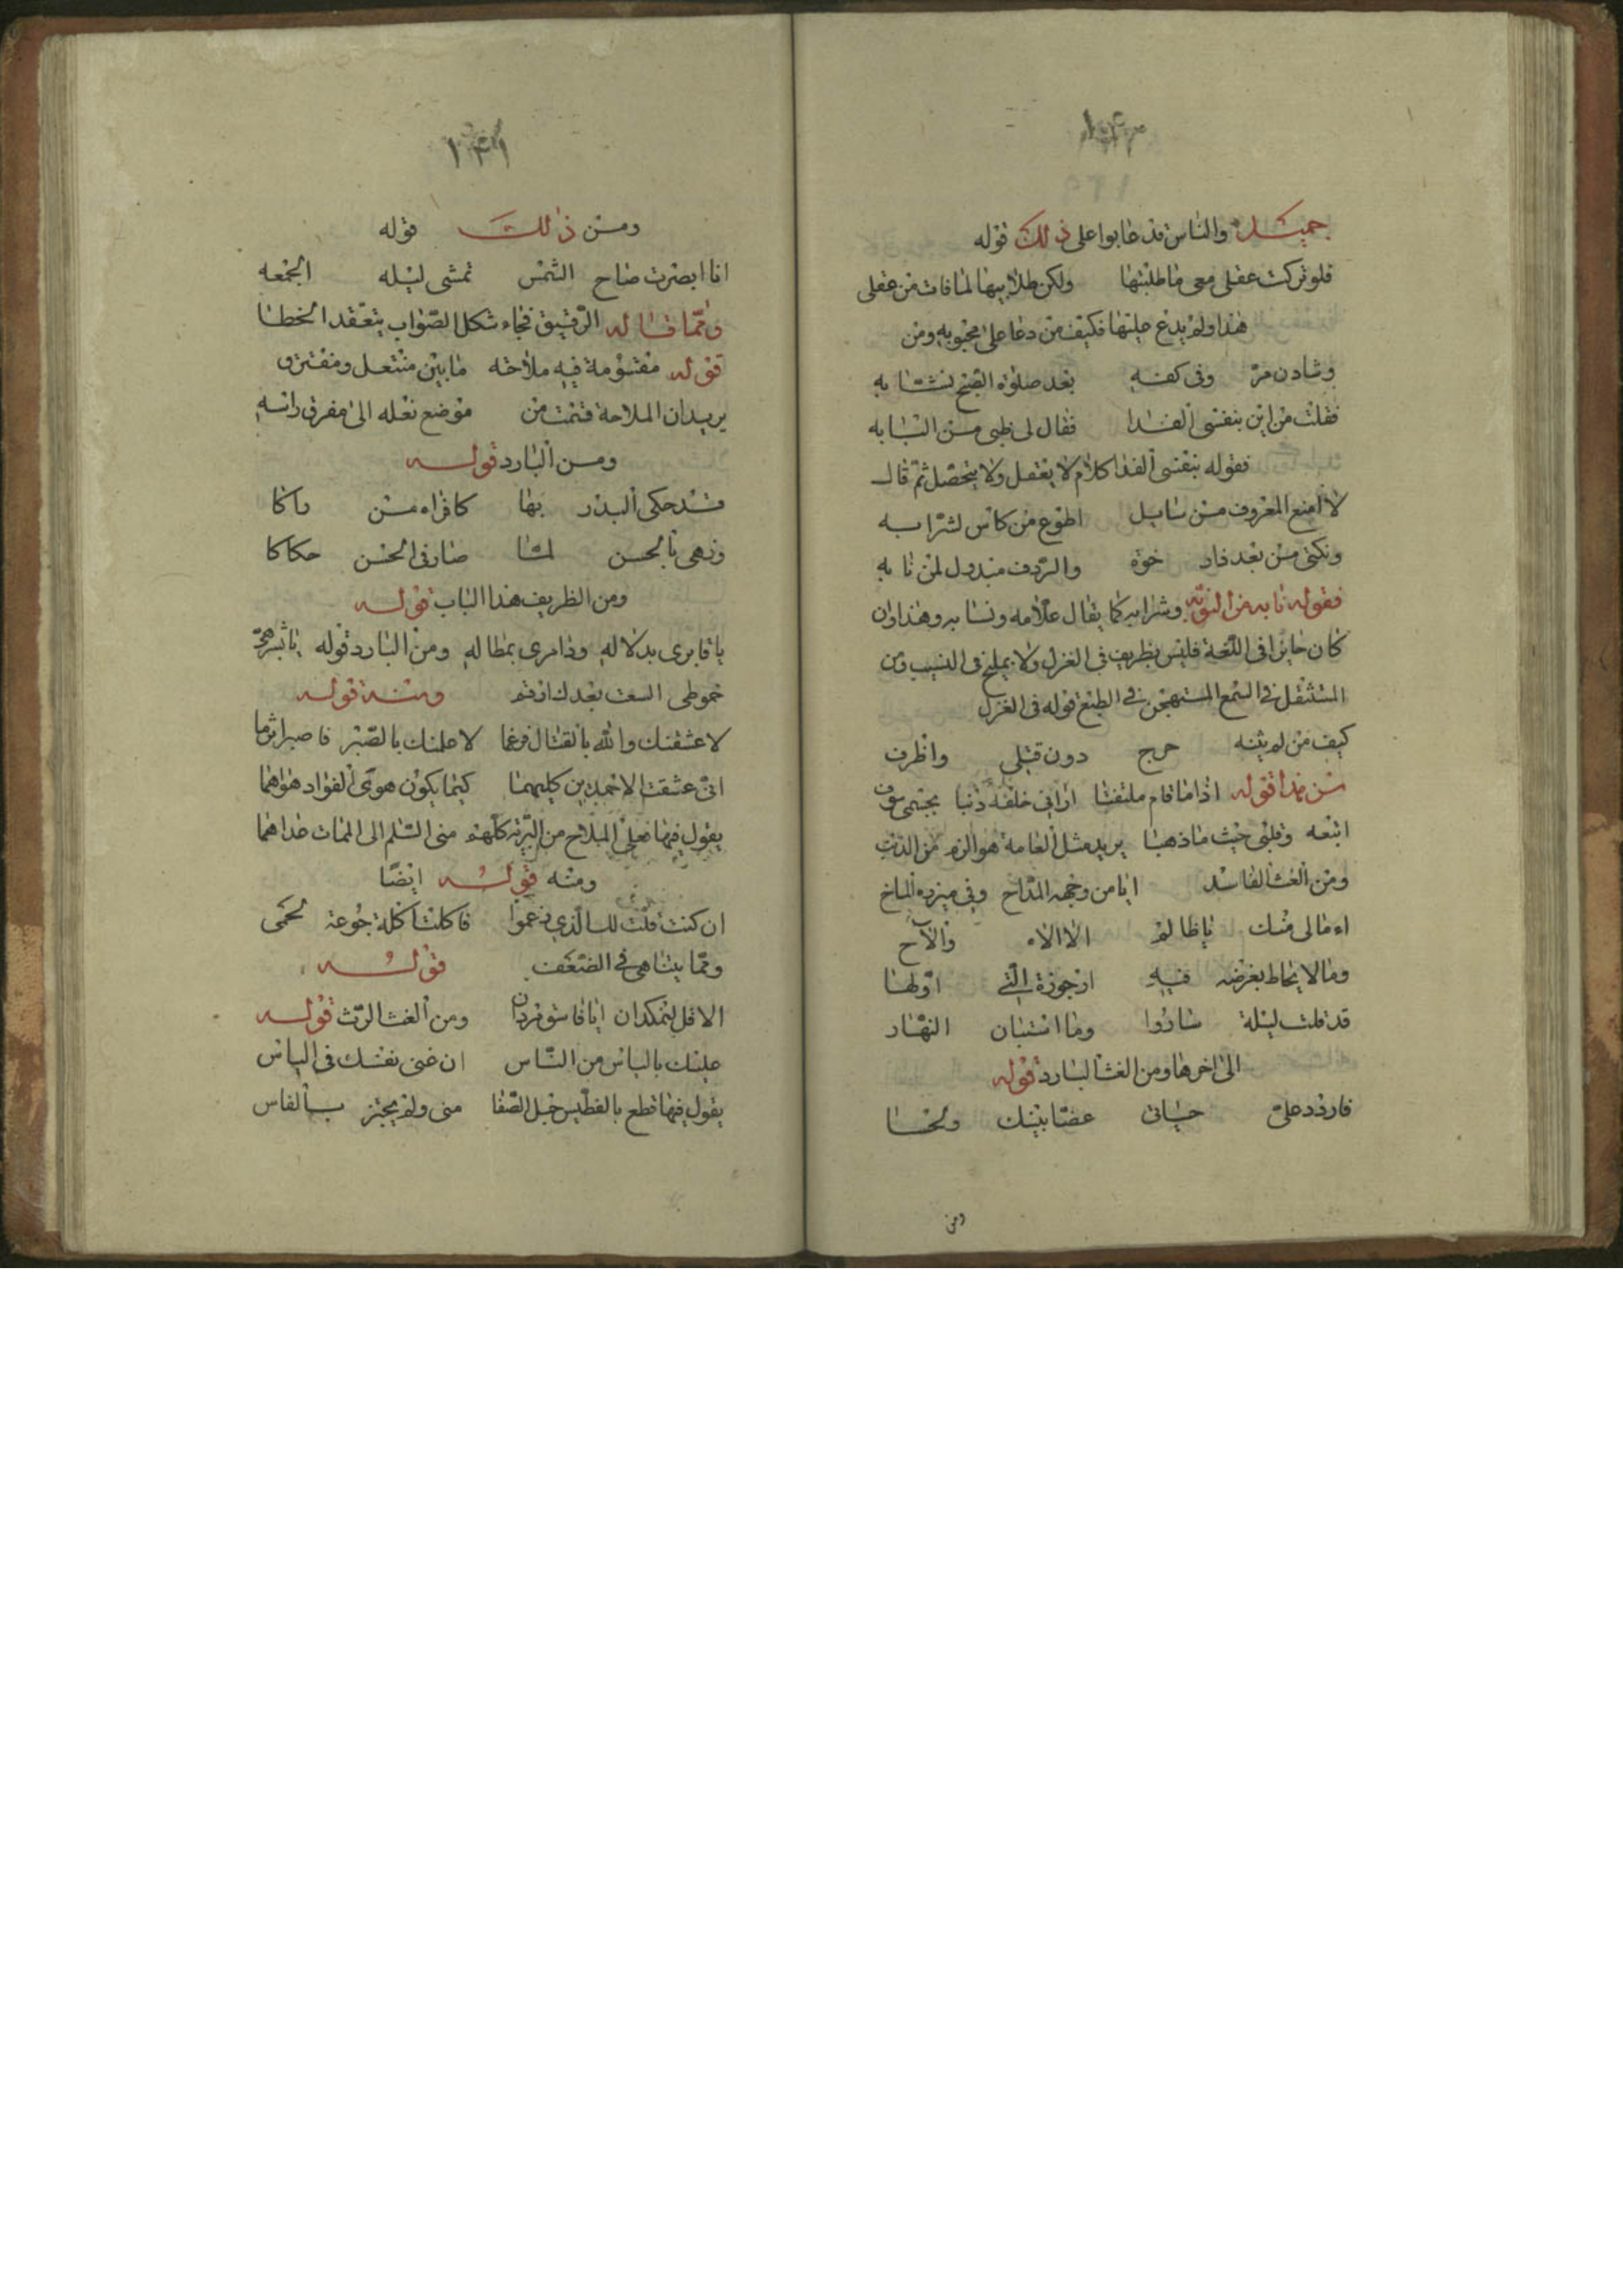 ١٤٠
جميل والناس قد عابوا على ذلك قوله
فلو تركت عقلى معى ما طلبتها ولكن طلابيها لما فات من عقلى
هذا ولم يدع عليها فكيف من دعا على محبوبه ومن
وشادن مر وفى كفه بعد صلوة الصبح نشابه
فقلت من اين بنفسى الفدا فقال لى ظبى من البابه
فقوله بنفسى الفدا كلام لا يعقل ولا يتحصل ثم قال
لا امنع المعروف من سايل اطوع من كاس لشرابه
والردف مبذول لمن نابه
فقوله نابه من النوبة وشرابه كما يقال علامه ونسابه وهذا وان
كان جايزا فى اللغة فليس بظريف فى الغزل ولا بمليح فى النسيب ومن
المستثقل فى السمع المستهجن فى الطبع قوله فى الغزل
كيف من لم يثنه حرج دون قتلى واظرف
من هذا قوله اذا ما قام ملتفتا ارانى خلفه ذنبا
اتبعه وقلبى حيث ما ذهبا يريد مثل العامة هو الزم من الذنب
ومن الغث الفاسد ايا من وجهه الداح وفى ميزره الماخ
اء ما لى منك يا ظالم الا الاء والآح
ومما لا يحاط بغرضه فيه ارجوزة التى اولها
قد قلت ليلة ساروا وما استبان النهار
الى اخرها ومن الغث البارد قوله
فاردد على حياتى عضا بفيك ولحسا
ومن
١٤١
ومن ذلك قوله
انا ابصرت صاح الشمس تمشى ليله الجمعه
ومما قاله الرقيق فجاء شكل الصواب يتعقد الخطا
قوله مقسومة فيه ملاحته ما بين منتعل ومفترق
يريد ان الملاحة قسمت من موضع نعله الى مفرق راسه
ومن البارد قوله
قد حكى البدر بها كا فراه من راكا
وزهى بالحسن لما صار فى الحسن حكاكا
ومن الظريف هذا الباب قوله
ومن البارد قوله
ومنه قوله
لاعشقنك والله يا لاعلمنك بالصبر
انى عشقت كليهما كيما يكون هوى الفواد هواهما
يقول فيها فعلى الملاح من البرية كلهم منى السلم الى الممات خلاهما
ومنه قوله ايضا
ان كنت قلت لك الذي زعموا فاكلت اكلة جوعة لحمى
ومما يتناهى فى الضعف قوله
ومن الغث الرث قوله
عليك بالياس من الناس ان غنى نفسك فى الياس
يقول فيها قطع بالفطيس حبل الصفا منى ولم يجتز بالفاس